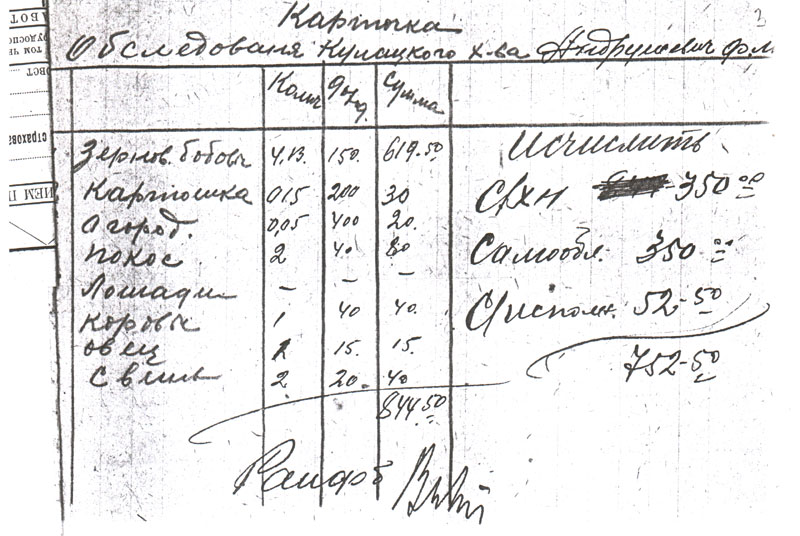 Карточка
Обследованя Кулацкого х-ва Андрушевич Ф.М.
Колич Доход. Сумма
Зернов. бобовы 4.13. 150. 619.50
Картошка 0,15 200 30
Огород. 0,05 400 20.
покос 2 40. 80
Лошади – – –
Коровы 1 40 40.
овец 1 15. 15.
Свинь 2 20. 40
844.50
Исчислить
С/хн 350.00
Самообл. 350.=
С/исполн. 52-50
752-50